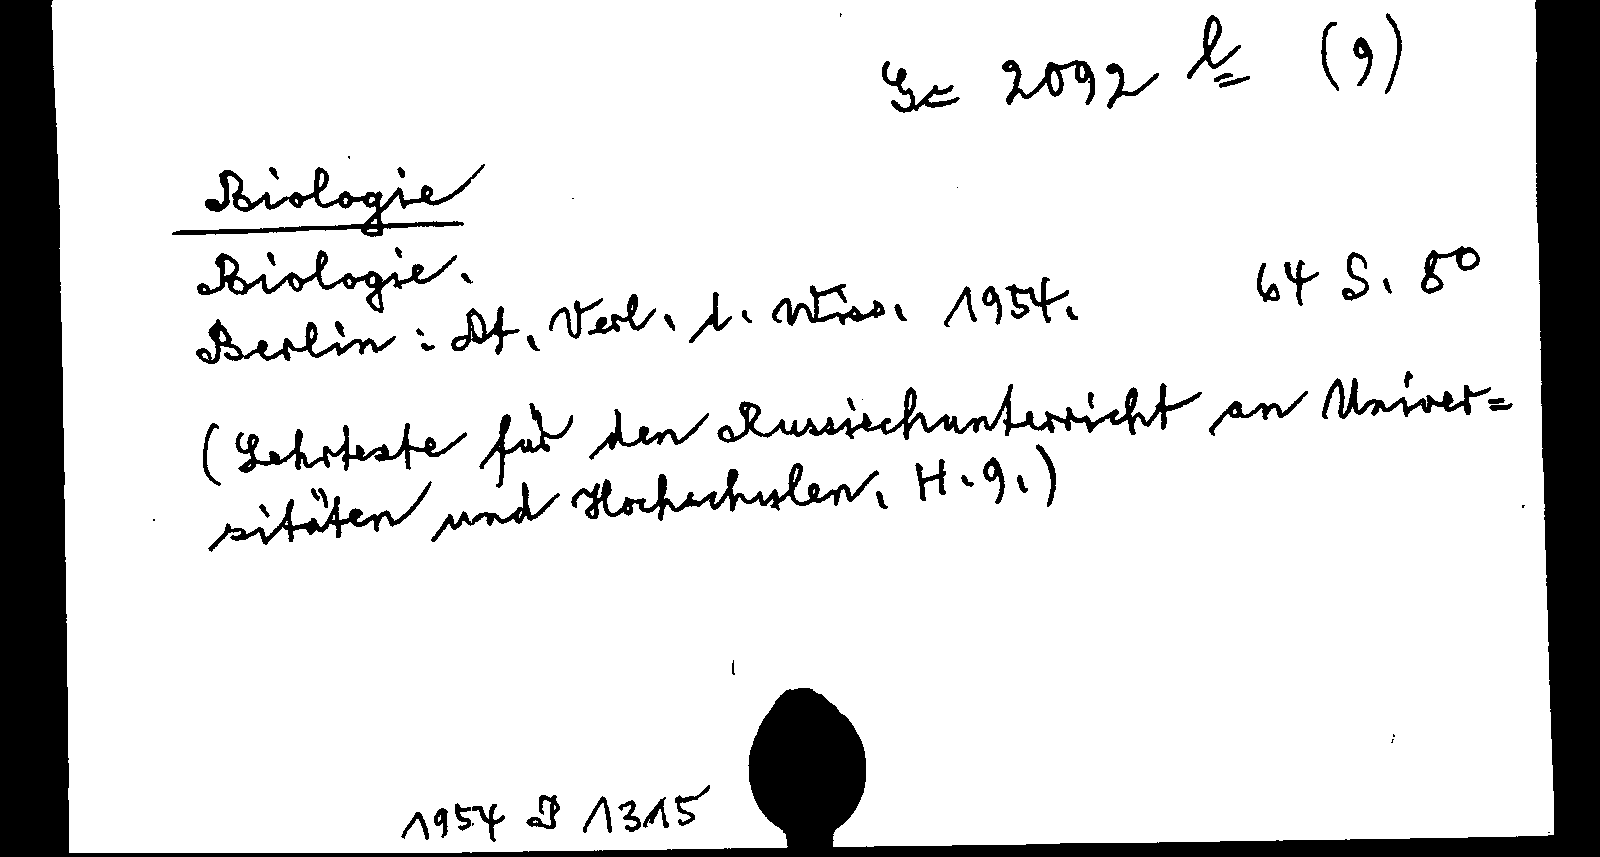 2092 b (9)
Biologie
Biologie. 64 S. 8⁰
Berlin: Dt. Verl. d. Wiss. 1954.
(Lehrtexte für den Russischunterricht an Univer=
sitäten und Hochschulen. H. 9.)
1954 P 1315